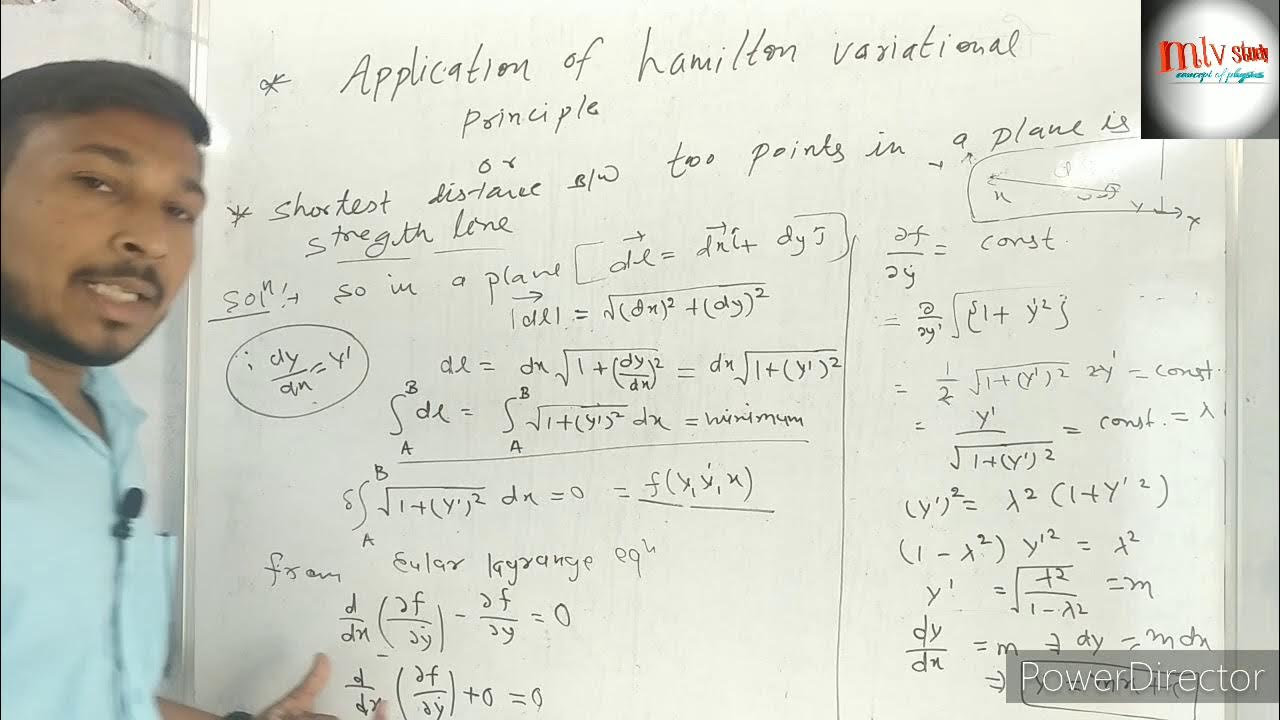 * Application of hamilton variational
principle
or
* shortest distance B/W two points in a plane is
stregth line
Solⁿ:→ so in a plane [dl = dxî + dyĵ]
|dl| = √(dx)² + (dy)²
∵ dy/dx = y'
dl = dx √1 + (dy/dx)² = dx √1 + (y')²
∫_A^B dl = ∫_A^B √1 + (y')² dx = minimum
δ∫_A^B √1 + (y')² dx = 0 = f(y, ẏ, x)
from Eular lagrange eqⁿ
d/dx (∂f/∂ẏ) - ∂f/∂y = 0
d/dx (∂f/∂ẏ) + 0 = 0
x
∂f/∂ẏ = const.
= ∂/∂y' √{1 + y'²}
= 1/2 √1 + (y')² 2y' = const.
= y'/√1 + (y')² = const. = λ
(y')² = λ² (1 + y'²)
(1 - λ²) y'² = λ²
y' = √λ²/1 - λ² = m
dy/dx = m ⇒ dy = m dx
⇒
mlv study
concept of physics
PowerDirector